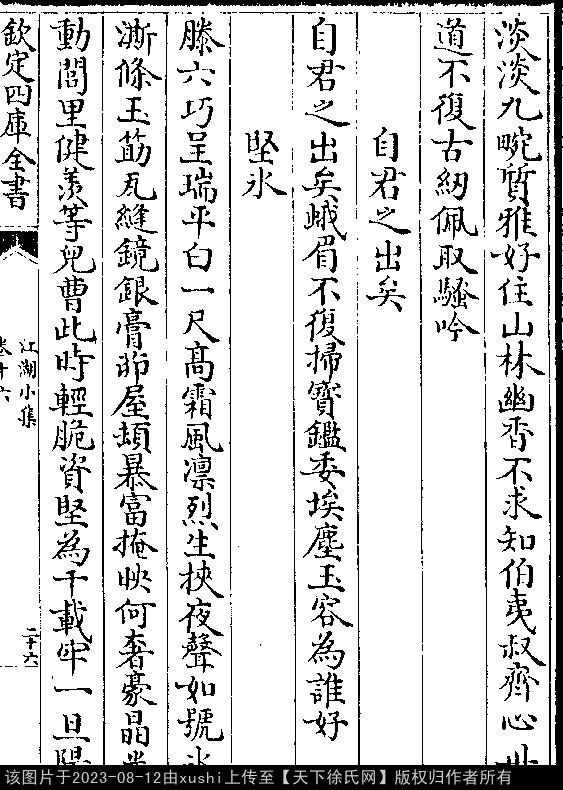 淡淡九畹質雅好住山林幽香不求知伯夷叔齊心世
道不復古紉佩取騷吟
自君之出矣
自君之出矣蛾眉不復掃寳鑑委埃塵玉容為誰好
堅氷
滕六巧呈瑞平白一尺髙霜風凛烈生挾夜聲如號氷
澌條玉莇瓦縫鏡銀膏茆屋頓暴富掩映何奢豪晶光
動閭里健羡等兒曹此時輕脆資堅為千載牢一旦陽
欽定四庫全書
江湖小集
卷十六
二十六
该图片于2023-08-12由xushi上传至【天下徐氏网】版权归作者所有